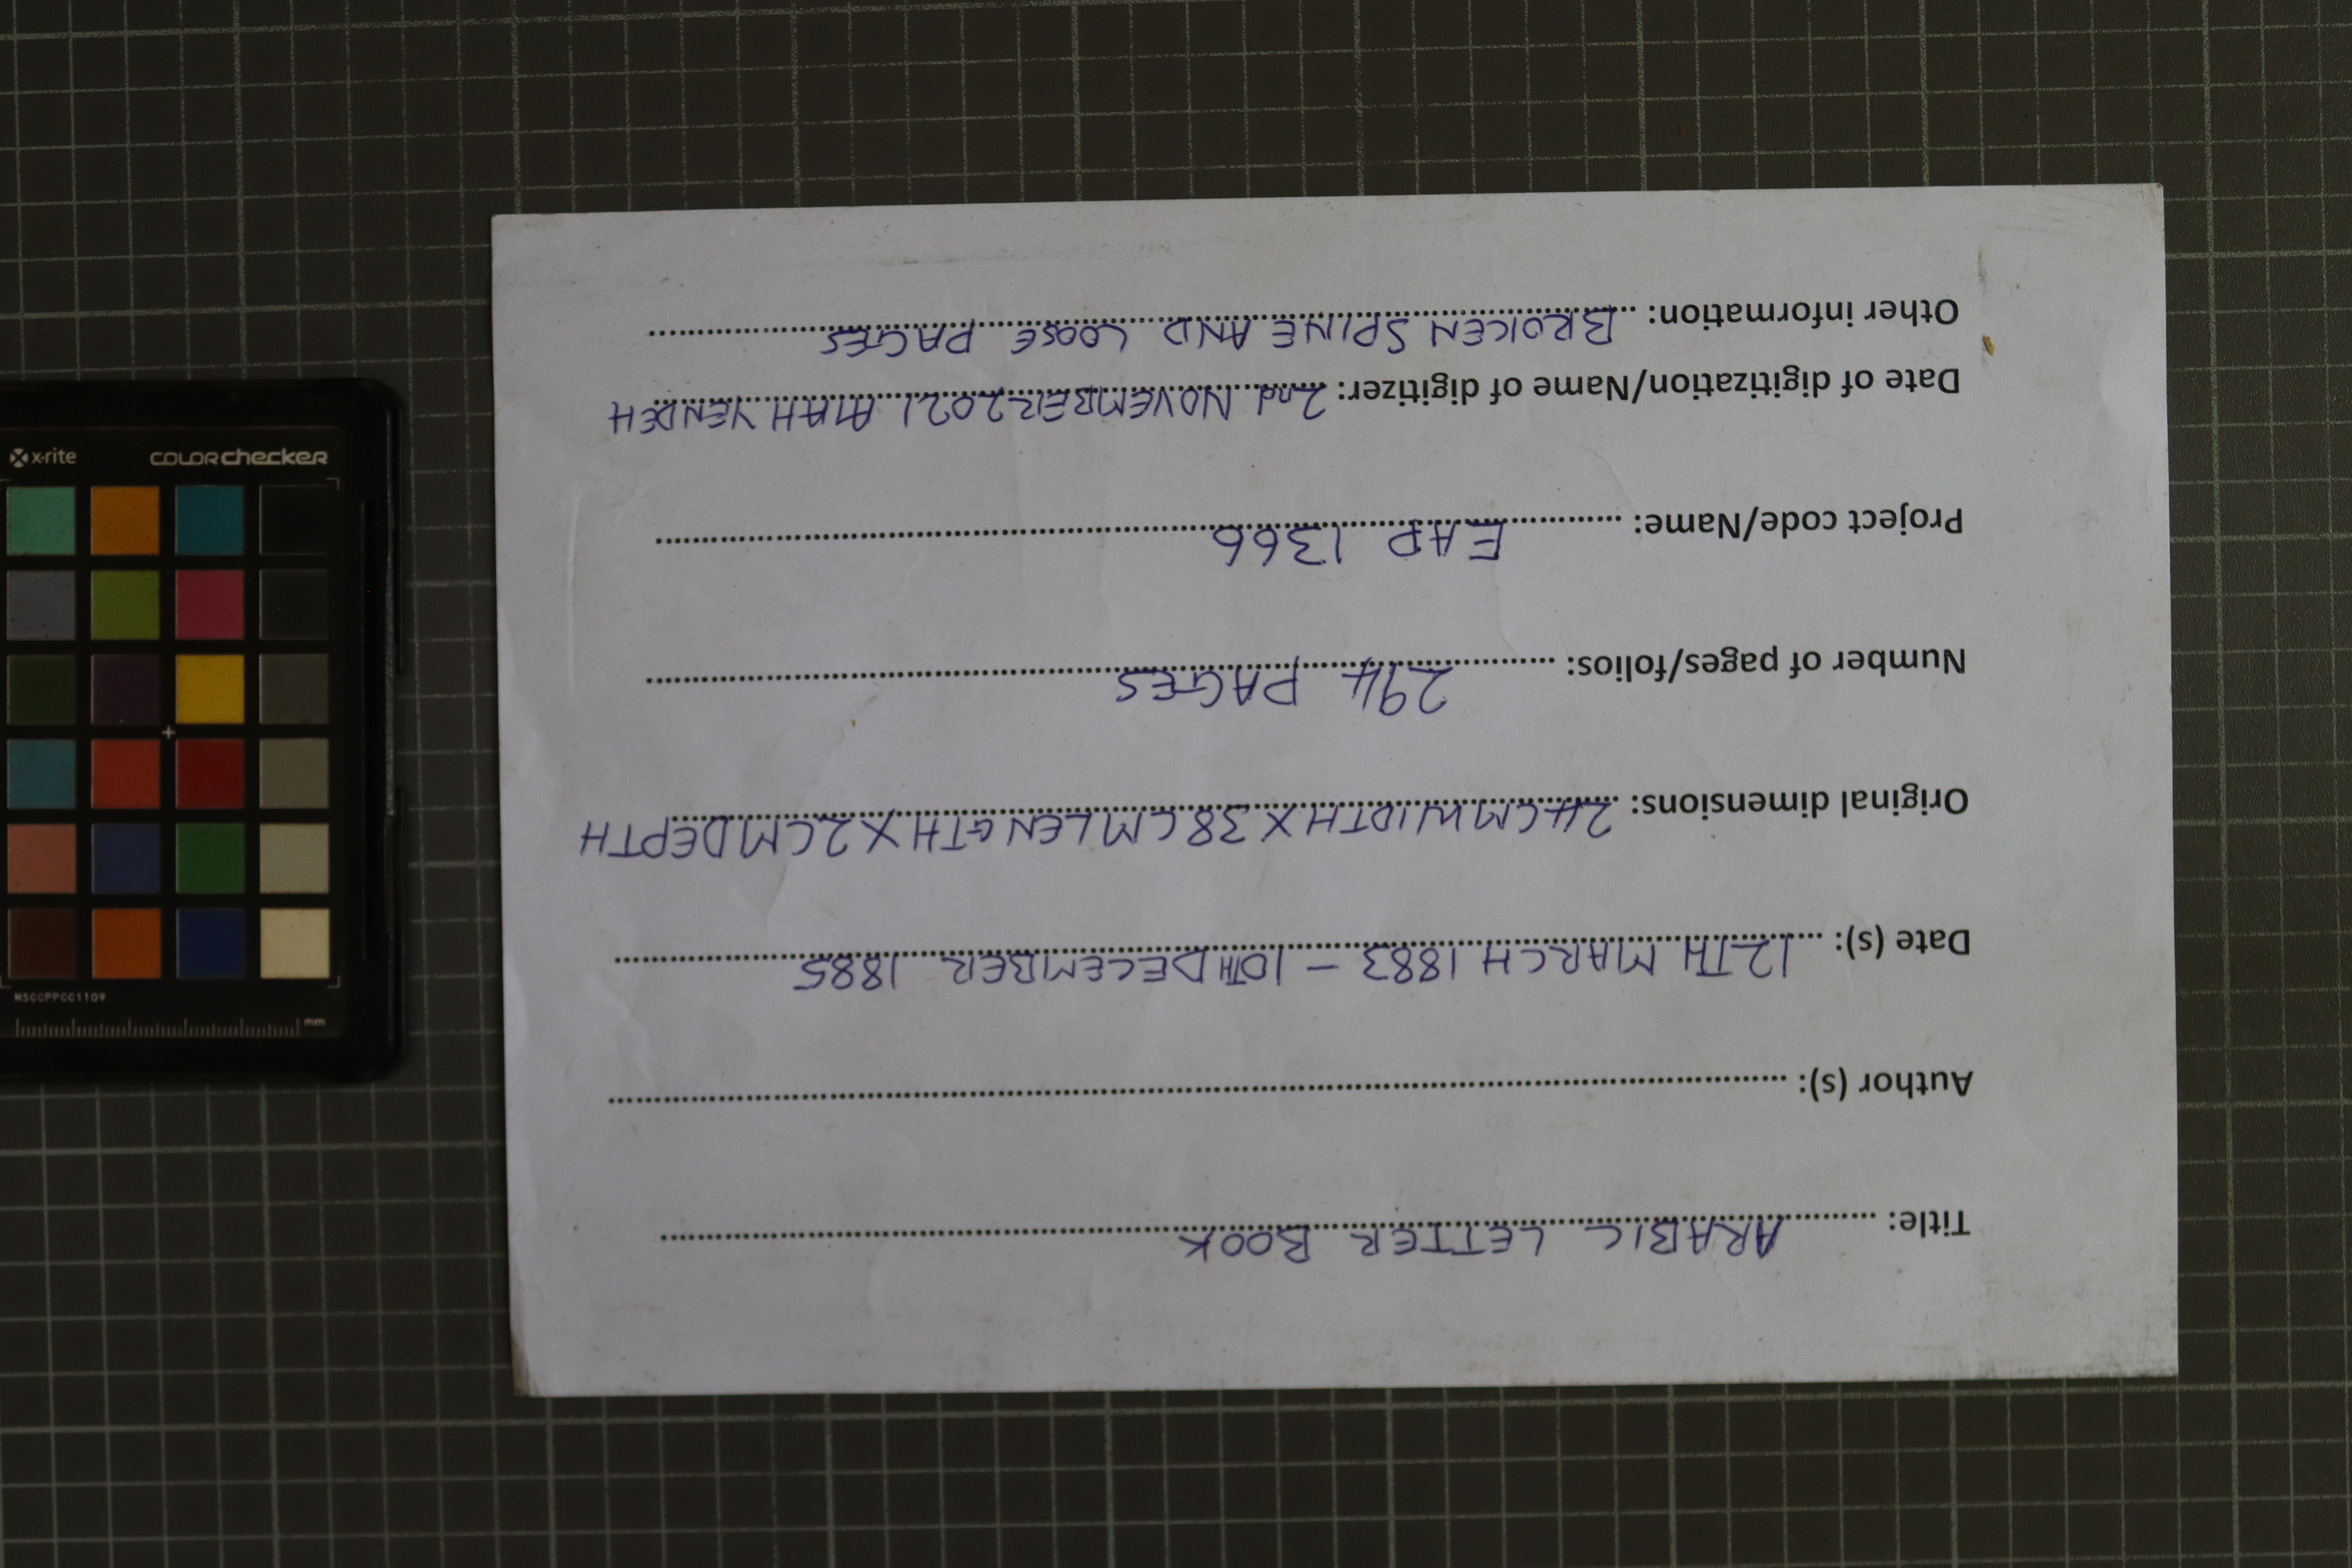 Title: ARABIC LETTER BOOK
Author (s):
Date (s): 12TH MARCH 1883 - 10TH DECEMBER 1885
Original dimensions: 24CM WIDTH X 38CM LENGTH X 2CM DEPTH
Number of pages/folios: 294 PAGES
Project code/Name: EAP 1366
Date of digitization/Name/Name of digitizer: 2nd NOVEMBER 2021 YENDEH
Other information: BROKEN SPINE AND LOOSE PAGES
x-rite colorchecker
MSCCPPCC1109
mm